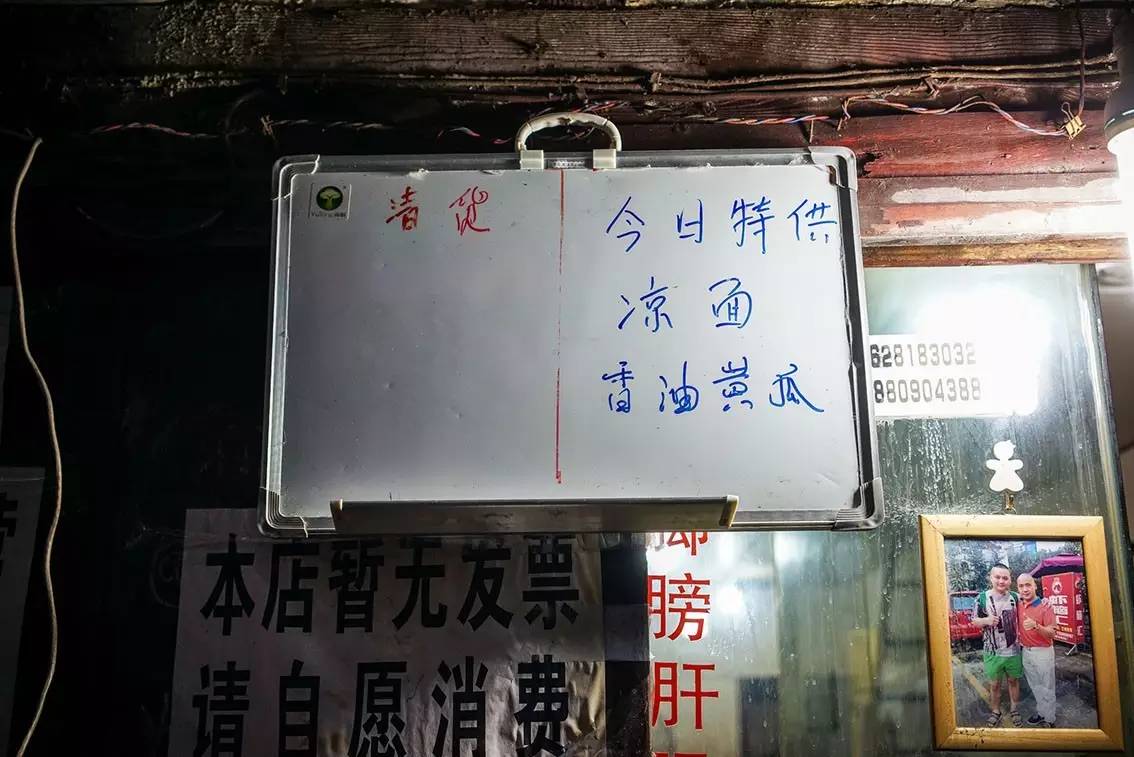 清货
今日特供
凉面
香油黄瓜
628183032
880904388
本店暂无发票
请自愿消费
膀
肝